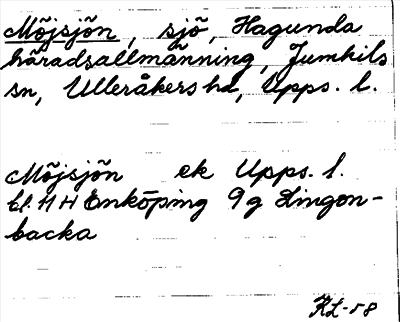 Möjsjön, sjö, Hagunda
häradsallmänning, Jumkils
sn, Ulleråkers hd, Upps. l.
Möjsjön ek Upps. l.
bl. 11 H Enköping 9g Lingon-
backa
KL-58